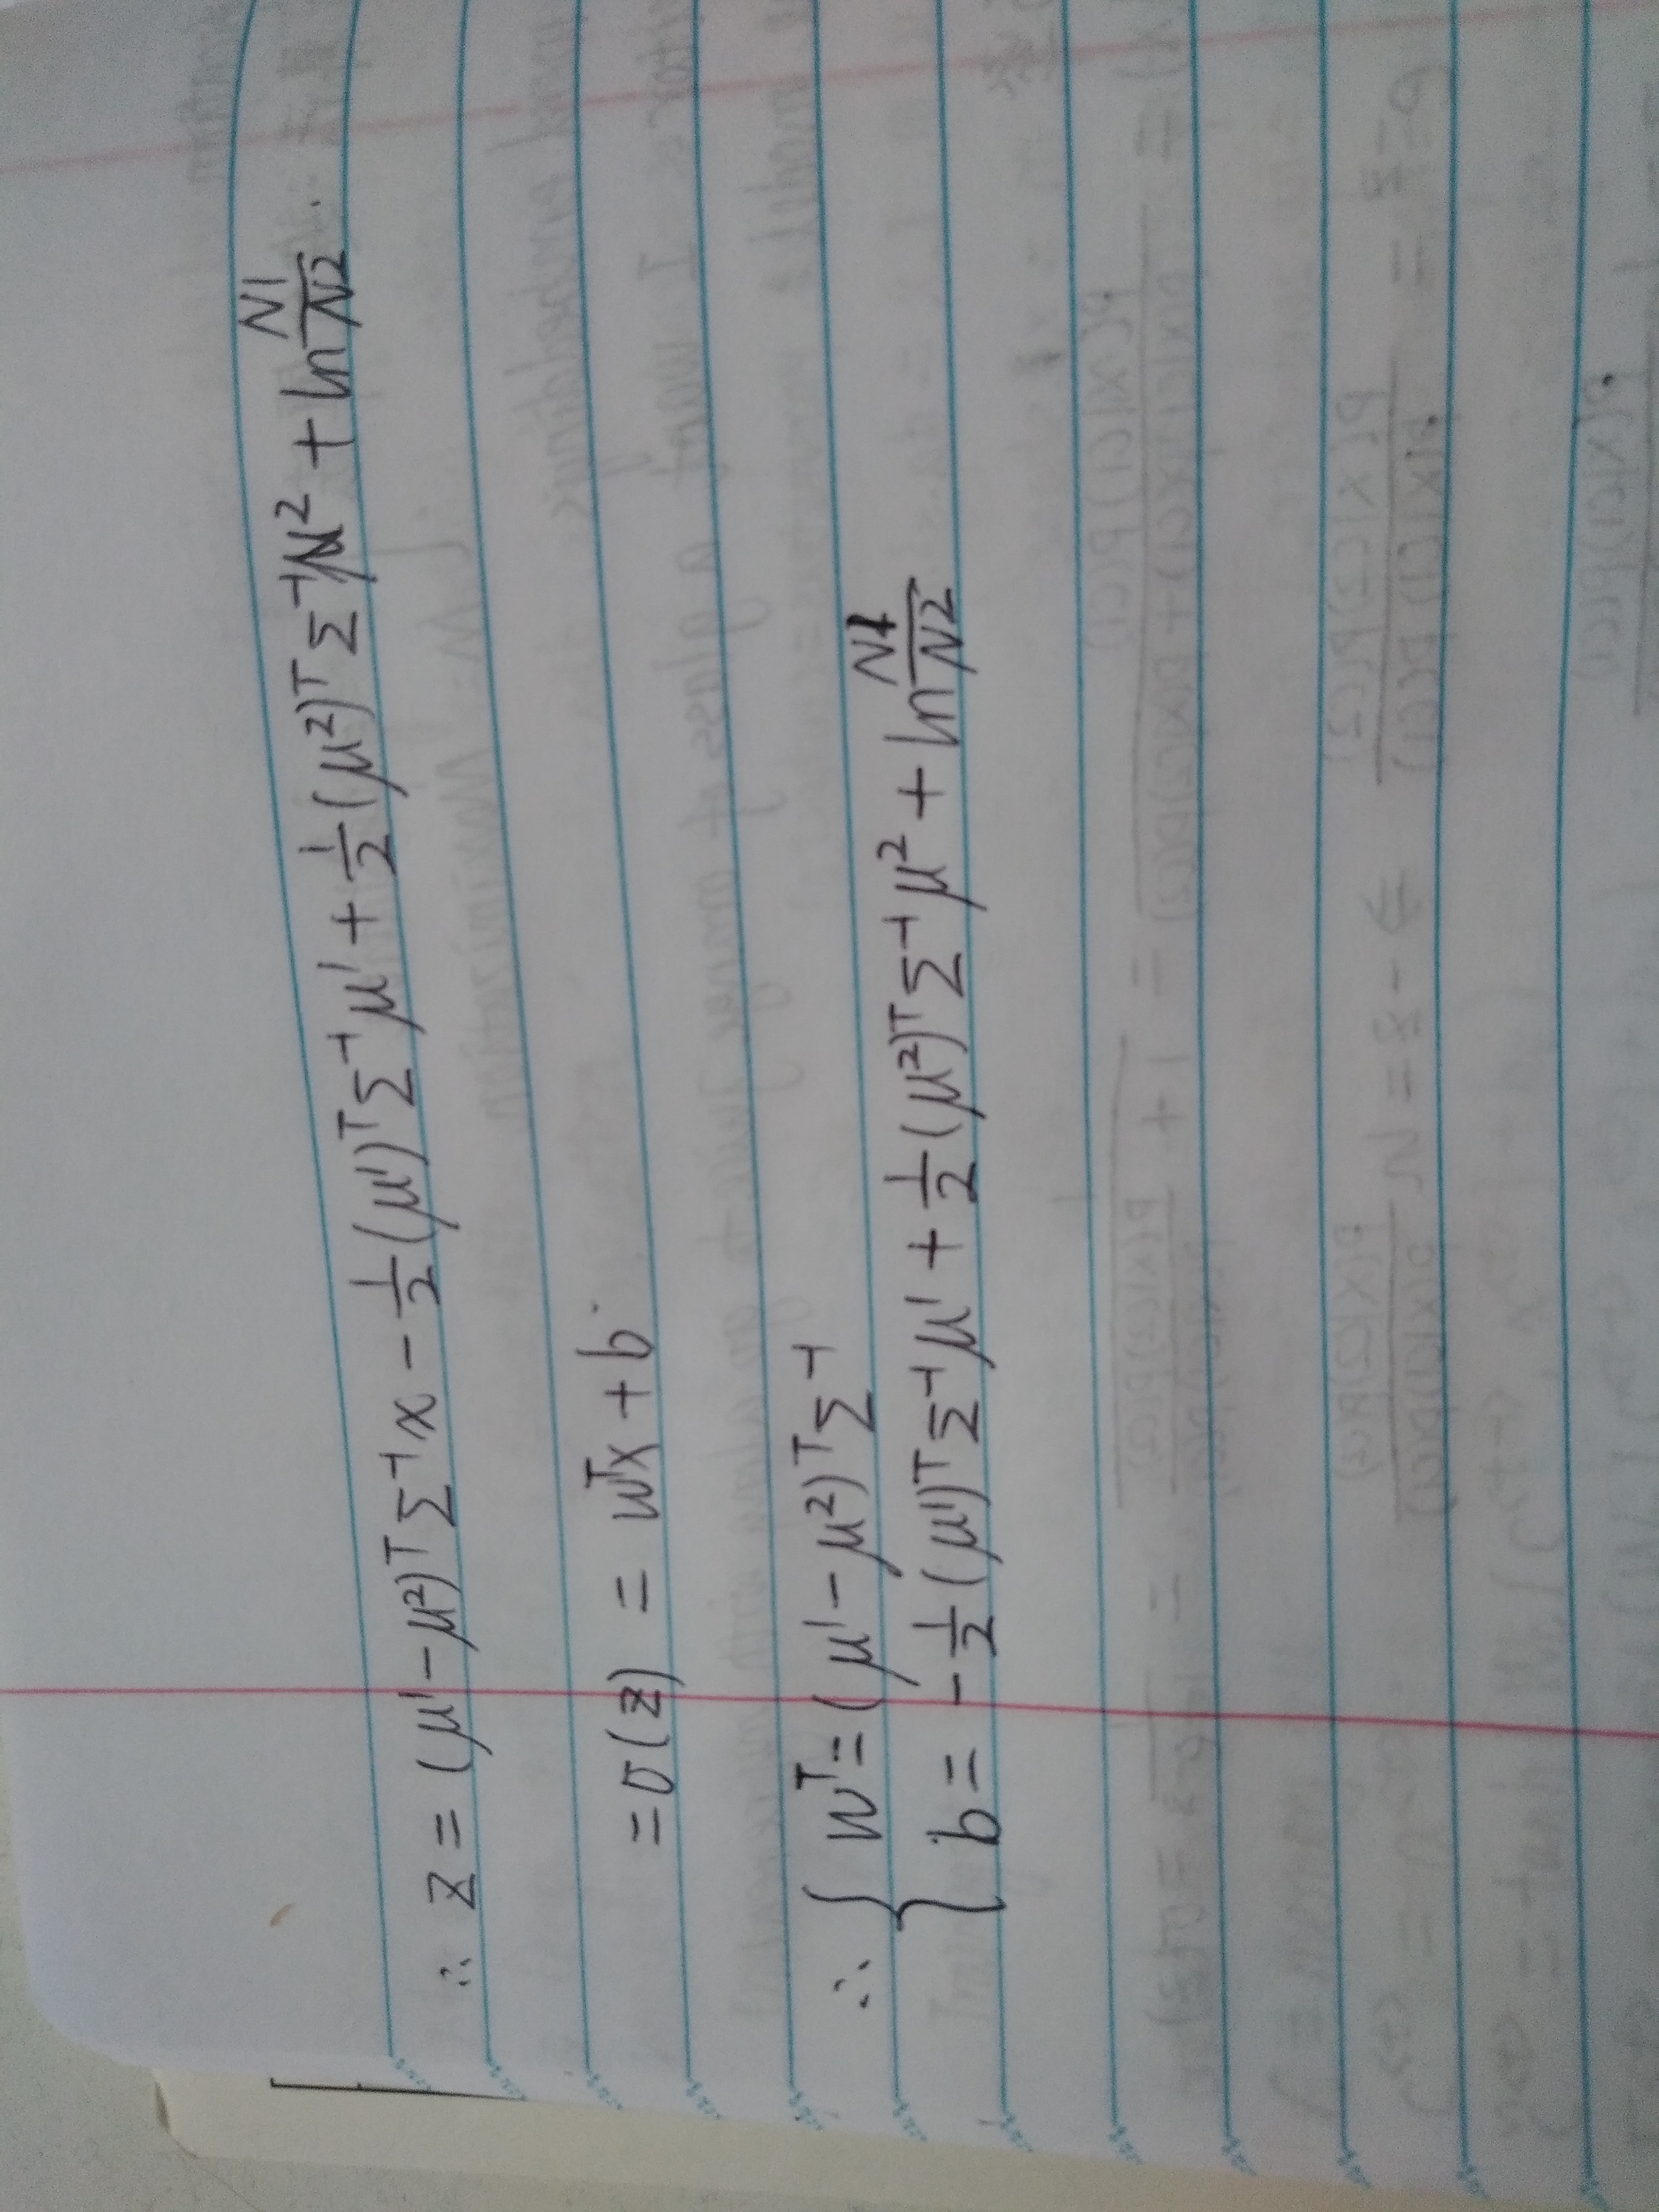 ∴ z = (μ¹ − μ²)ᵀ Σ⁻¹ x − 1/2 (μ¹)ᵀ Σ⁻¹ μ¹ + 1/2 (μ²)ᵀ Σ⁻¹ μ² + ln N1/N2 .
= σ(z) = wᵀx + b
∴ { wᵀ = (μ¹ − μ²)ᵀ Σ⁻¹
b = − 1/2 (μ¹)ᵀ Σ⁻¹ μ¹ + 1/2 (μ²)ᵀ Σ⁻¹ μ² + ln N1/N2